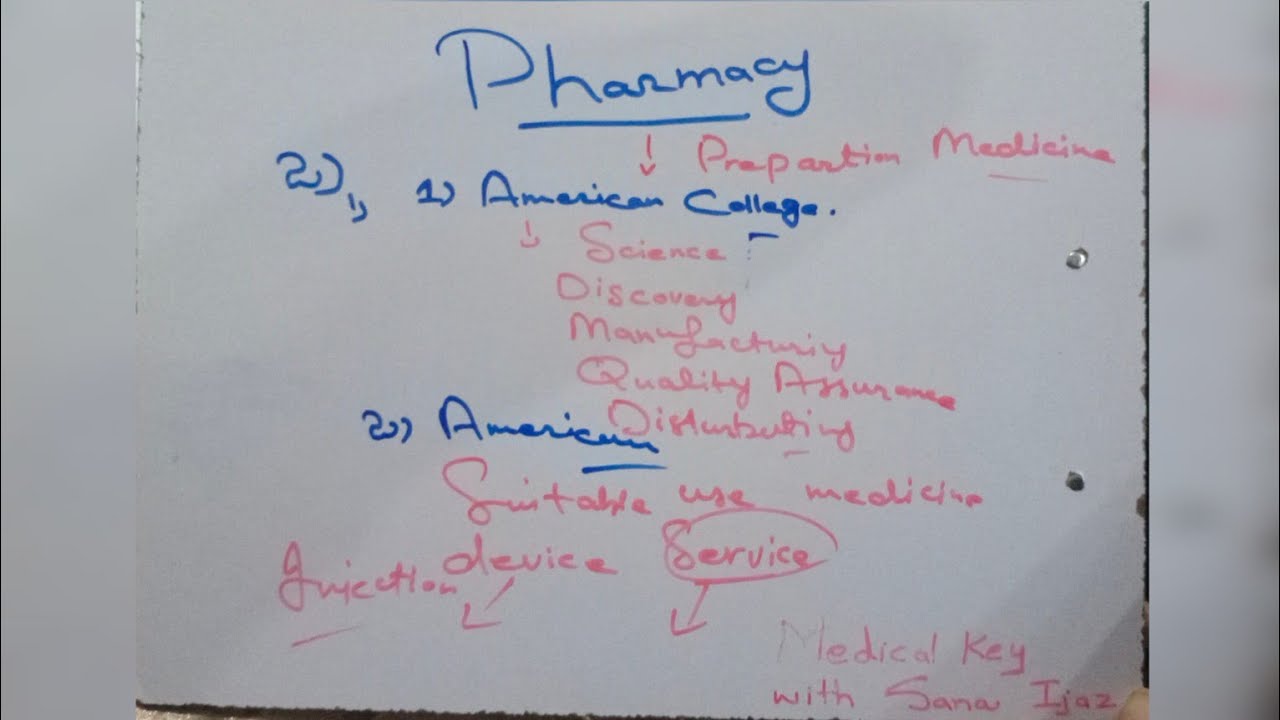 Pharmacy
↓ Prepartion Medicine
2) 1) American College.
↓ Science
Discovery
Manufacturing
Quality Assurance
Disturbuting
2) American
Suitable use medicine
Injection device Service
Medical Key
with Sana Ijaz